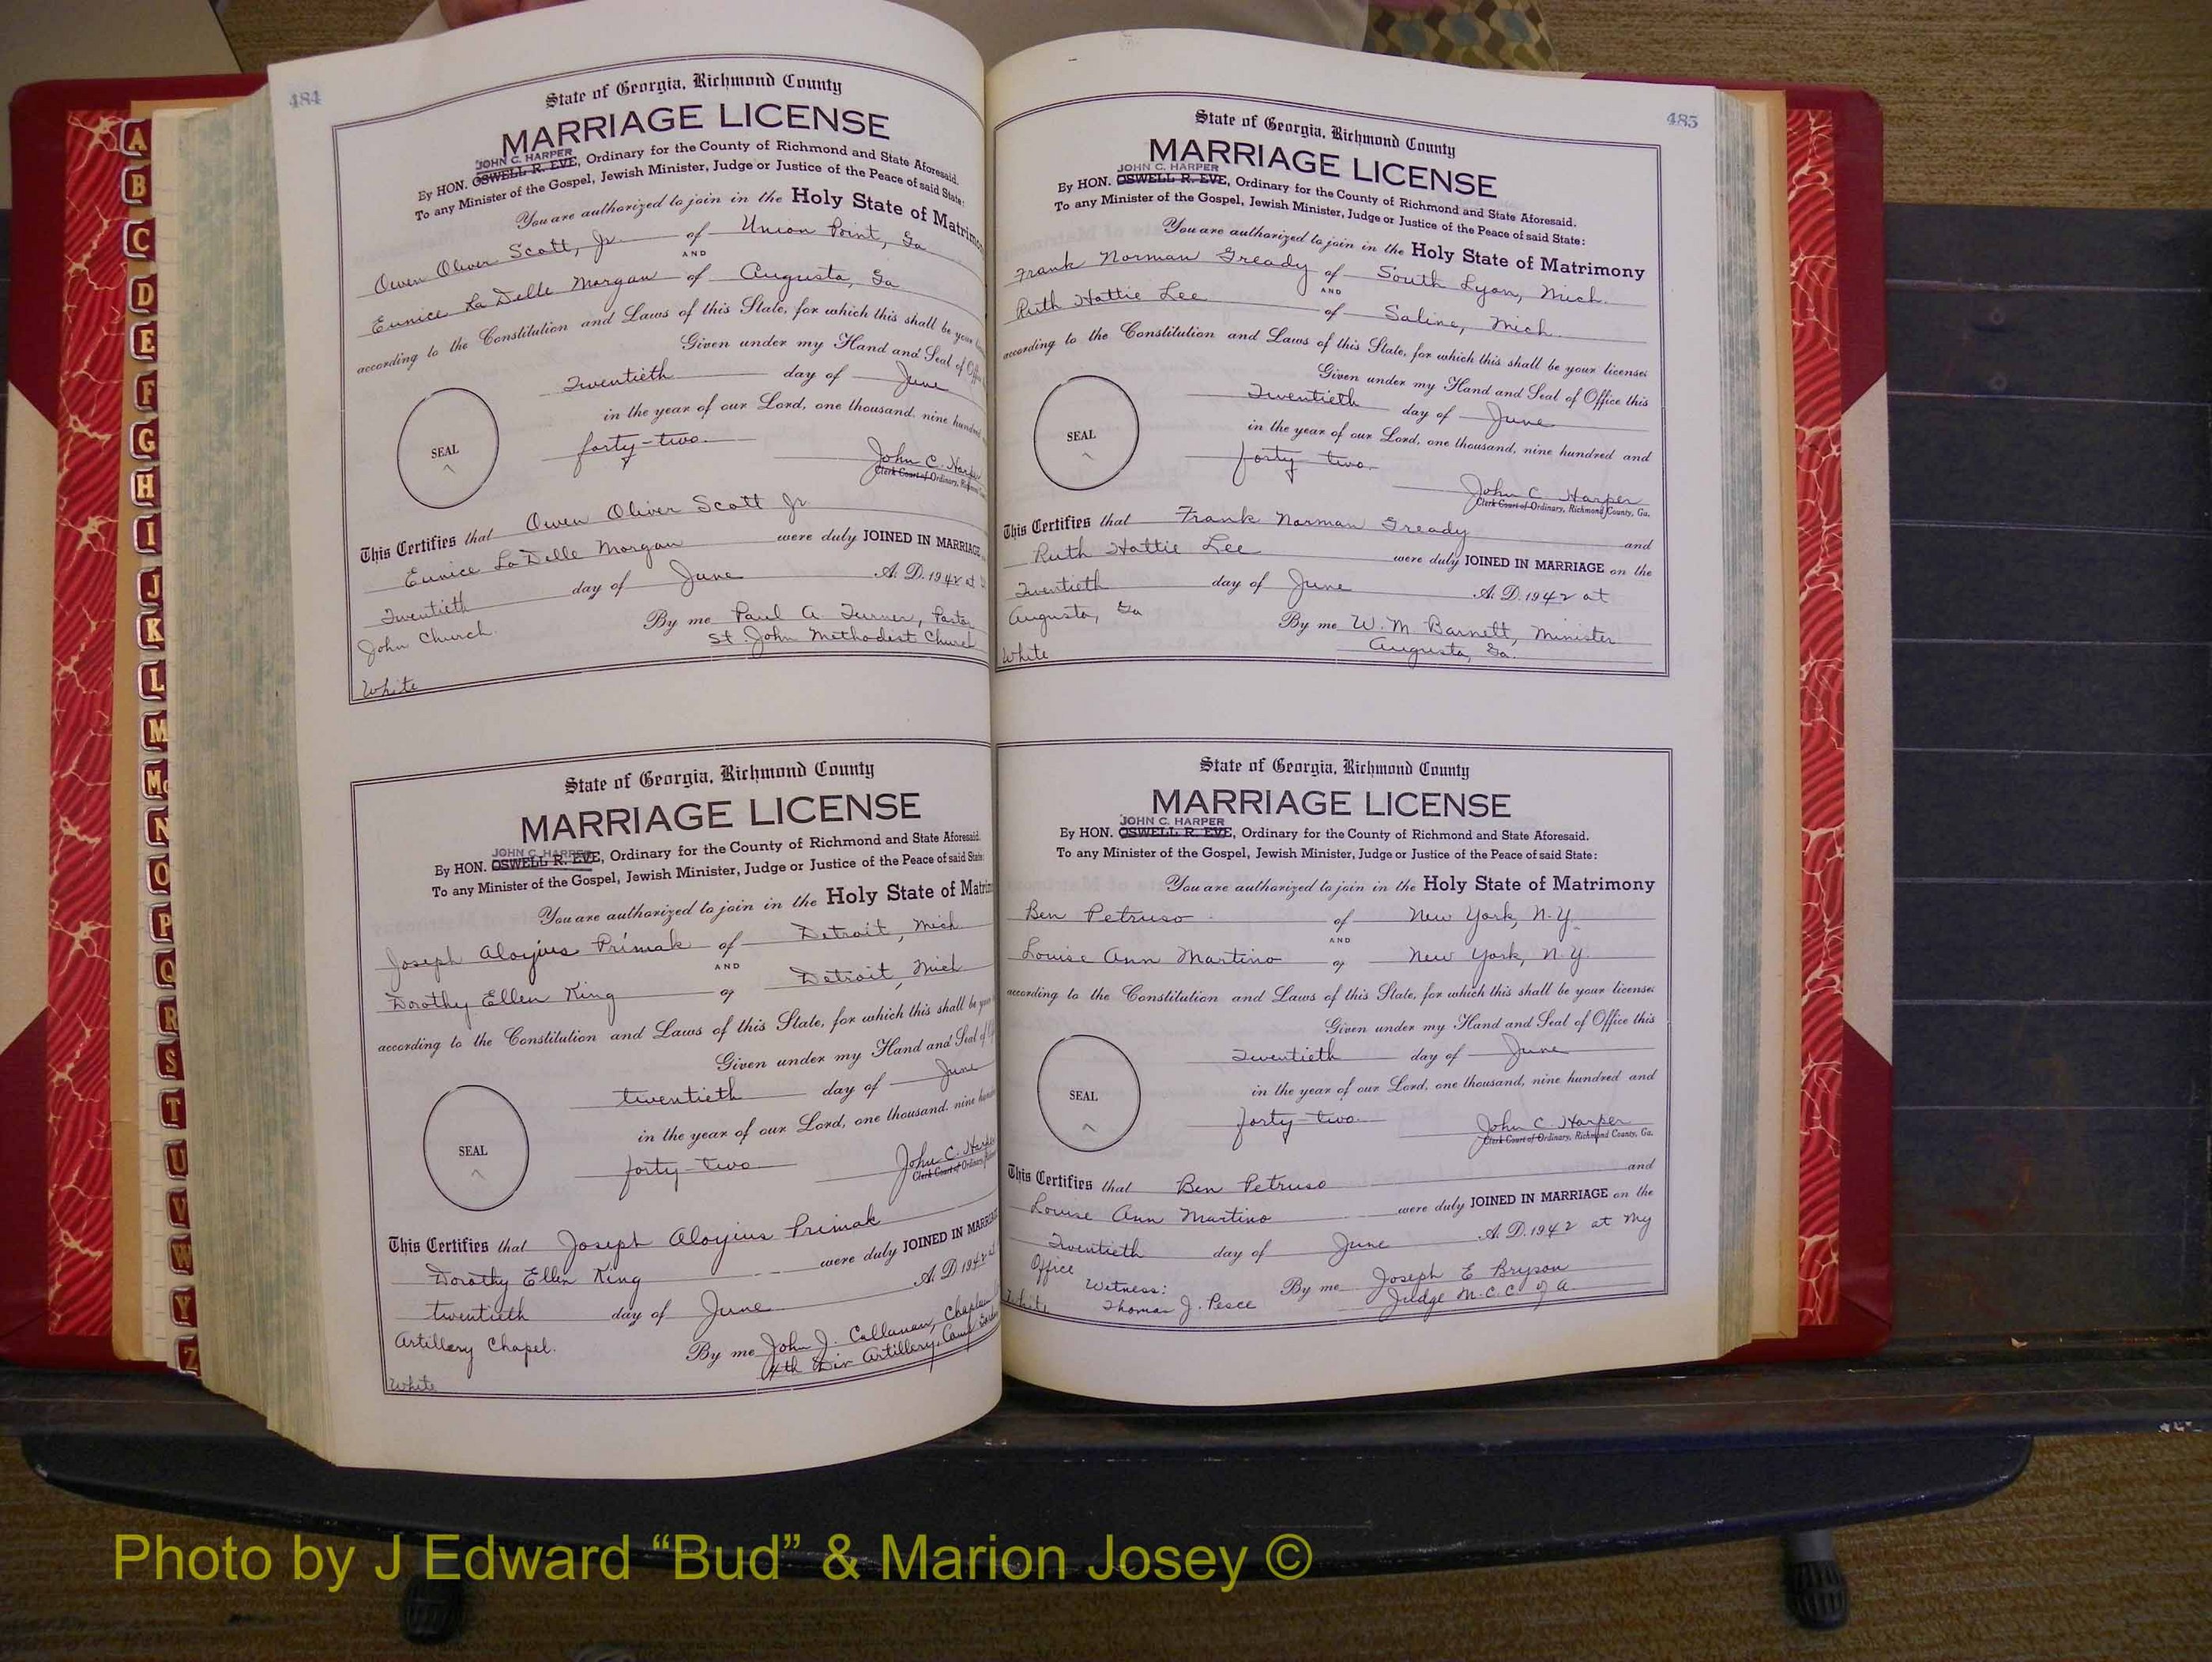 484
State of Georgia, Richmond County
MARRIAGE LICENSE
JOHN C. HARPER
By HON. OSWELL R. EVE, Ordinary for the County of Richmond and State Aforesaid.
To any Minister of the Gospel, Jewish Minister, Judge or Justice of the Peace of said State:
You are authorized to join in the Holy State of Matrimon
Owen Oliver Scott, Jr. of Union Point, Ga
AND
Eunice La Delle Morgan of Augusta, Ga
according to the Constitution and Laws of this State, for which this shall be your
Given under my Hand and Seal of
Twentieth day of June
in the year of our Lord, one thousand, nine hundred
forty-two
SEAL
John C. Harper
Clerk Court of Ordinary,
This Certifies that Owen Oliver Scott Jr
Eunice La Delle Morgan were duly JOINED IN MARRIAGE
Twentieth day of June A. D. 1942 at
John Church
By me Paul A Turner, Pastor
St. John Methodist Church
White
State of Georgia, Richmond County
MARRIAGE LICENSE
JOHN C. HARPER
By HON. OSWELL R. EVE, Ordinary for the County of Richmond and State Aforesaid.
To any Minister of the Gospel, Jewish Minister, Judge or Justice of the Peace of said State:
You are authorized to join in the Holy State of Matrim
Joseph Aloyius Primak of Detroit, Mich
AND
Dorothy Ellen King of Detroit, Mich
according to the Constitution and Laws of this State, for which this shall be your
Given under my Hand and Seal of
twentieth day of June
in the year of our Lord, one thousand, nine
forty-two
SEAL
John C. Harper
Clerk Court of Ordinary,
This Certifies that Joseph Aloyius Primak
Dorothy Ellen King were duly JOINED IN MARRIAGE
twentieth day of June A. D. 1942 at
Artillery Chapel.
By me John J. Callanan, Chaplain
4th Div Artillery, Camp Gordon
White
485
State of Georgia, Richmond County
MARRIAGE LICENSE
JOHN C. HARPER
By HON. OSWELL R. EVE, Ordinary for the County of Richmond and State Aforesaid.
To any Minister of the Gospel, Jewish Minister, Judge or Justice of the Peace of said State:
You are authorized to join in the Holy State of Matrimony
Frank Norman Gready of South Lyon, Mich.
AND
Ruth Hattie Lee of Saline, Mich.
according to the Constitution and Laws of this State, for which this shall be your license:
Given under my Hand and Seal of Office this
Twentieth day of June
in the year of our Lord, one thousand, nine hundred and
forty two.
SEAL
John C. Harper
Clerk Court of Ordinary, Richmond County, Ga.
This Certifies that Frank Norman Gready and
Ruth Hattie Lee were duly JOINED IN MARRIAGE on the
Twentieth day of June A. D. 1942 at
Augusta, Ga
By me W. M. Barnett, Minister
Augusta, Ga.
White
State of Georgia, Richmond County
MARRIAGE LICENSE
JOHN C. HARPER
By HON. OSWELL R. EVE, Ordinary for the County of Richmond and State Aforesaid.
To any Minister of the Gospel, Jewish Minister, Judge or Justice of the Peace of said State:
You are authorized to join in the Holy State of Matrimony
Ben Petruso of New York, N.Y.
AND
Louise Ann Martino of New York, N.Y.
according to the Constitution and Laws of this State, for which this shall be your license:
Given under my Hand and Seal of Office this
Twentieth day of June
in the year of our Lord, one thousand, nine hundred and
forty-two
SEAL
John C. Harper
Clerk Court of Ordinary, Richmond County, Ga.
This Certifies that Ben Petruso and
Louise Ann Martino were duly JOINED IN MARRIAGE on the
Twentieth day of June A. D. 1942 at my
Office
Witness:
Thomas J. Pesce
By me Joseph E Bryson
Judge M.C.C of A.
White
A
B
C
D
E
F
G
H
I
J
K
L
M
Mc
N
O
P
Q
R
S
T
U
V
W
Y
Z
Photo by J Edward “Bud” & Marion Josey ©